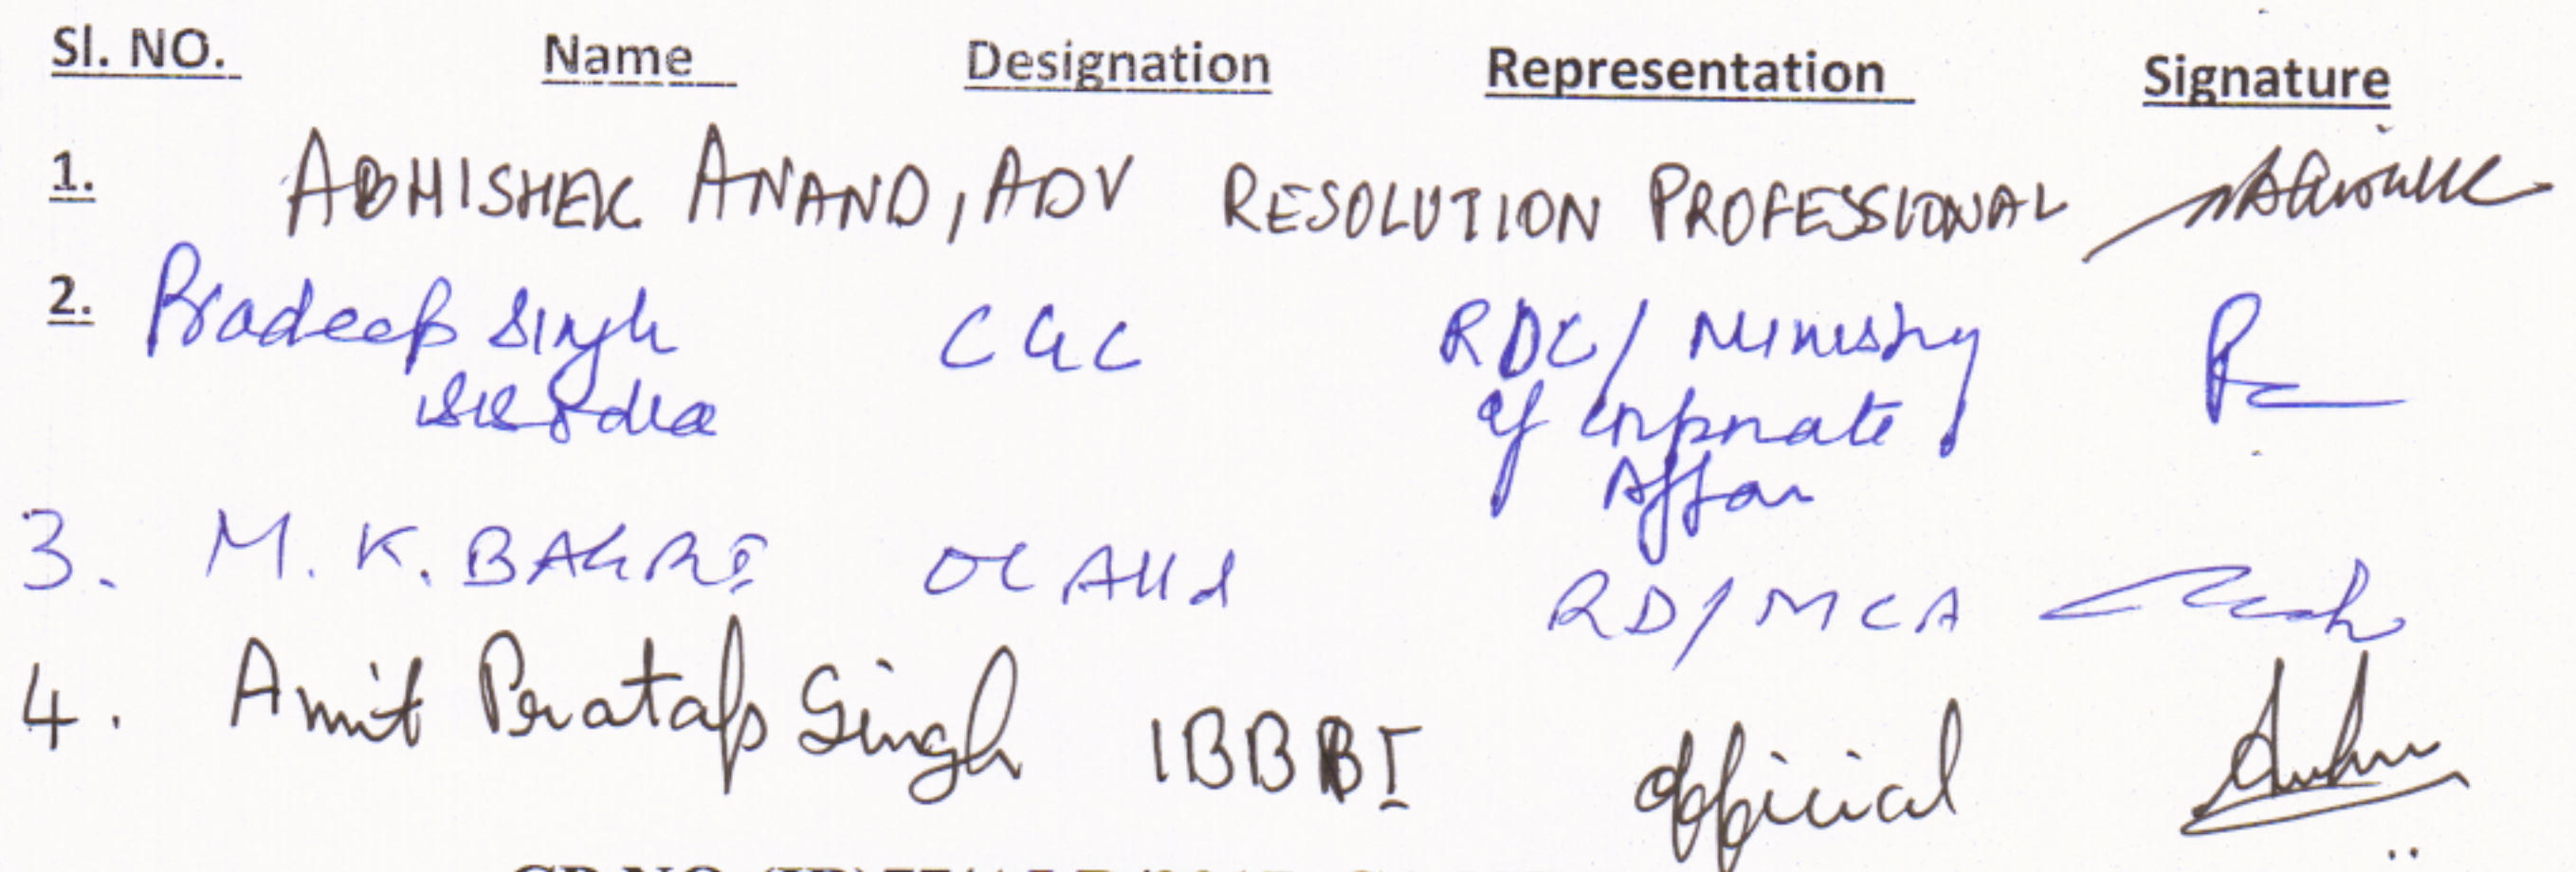 Sl. NO. Name Designation Representation Signature
1. ABHISHEK ANAND, ADV RESOLUTION PROFESSIONAL
2. Pradeep Singh CGC RDC/ Ministry
Sisodia of Corporate
Affair
3. M. K. BAGRI OL Alld RD/MCA
4. Amit Pratap Singh IBBBI official